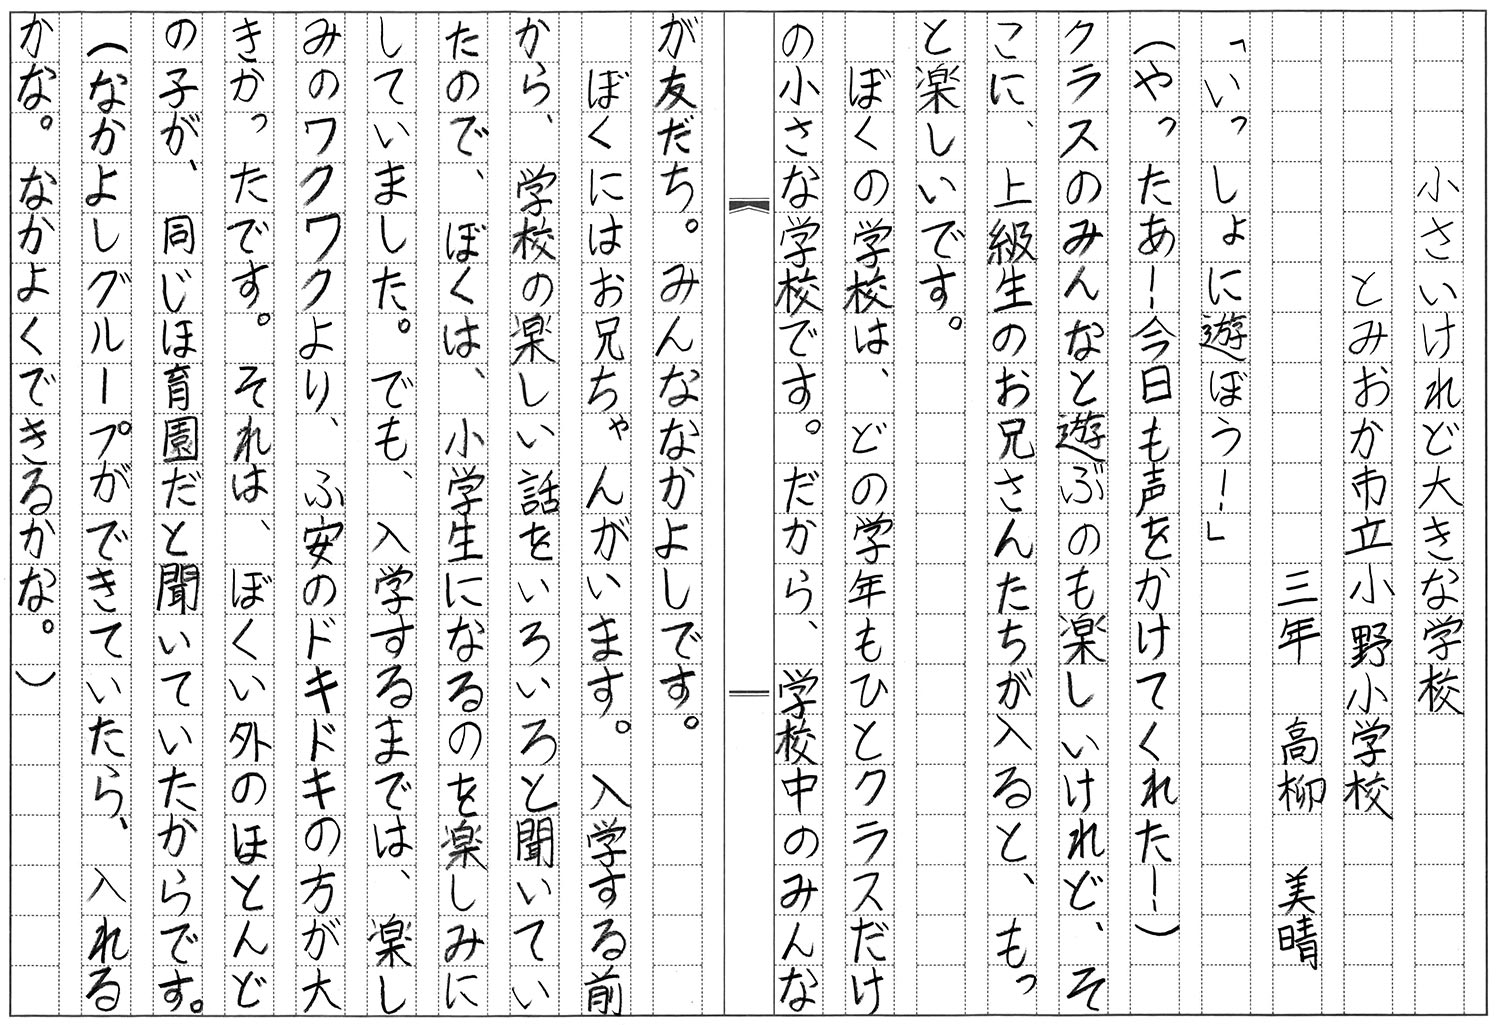 小さいけれど大きな学校
とみおか市立小野小学校
三年　高柳　美晴
「いっしょに遊ぼう！」
（やったあ！今日も声をかけてくれた！）
クラスのみんなと遊ぶのも楽しいけれど、そ
こに、上級生のお兄さんたちが入ると、もっ
と楽しいです。
ぼくの学校は、どの学年もひとクラスだけ
の小さな学校です。だから、学校中のみんな
が友だち。みんななかよしです。
ぼくにはお兄ちゃんがいます。入学する前
から、学校の楽しい話をいろいろと聞いてい
たので、ぼくは、小学生になるのを楽しみに
していました。でも、入学するまでは、楽し
みのワクワクより、ふ安のドキドキの方が大
きかったです。それは、ぼくい外のほとんど
の子が、同じほ育園だと聞いていたからです。
（なかよしグループができていたら、入れる
かな。なかよくできるかな。）